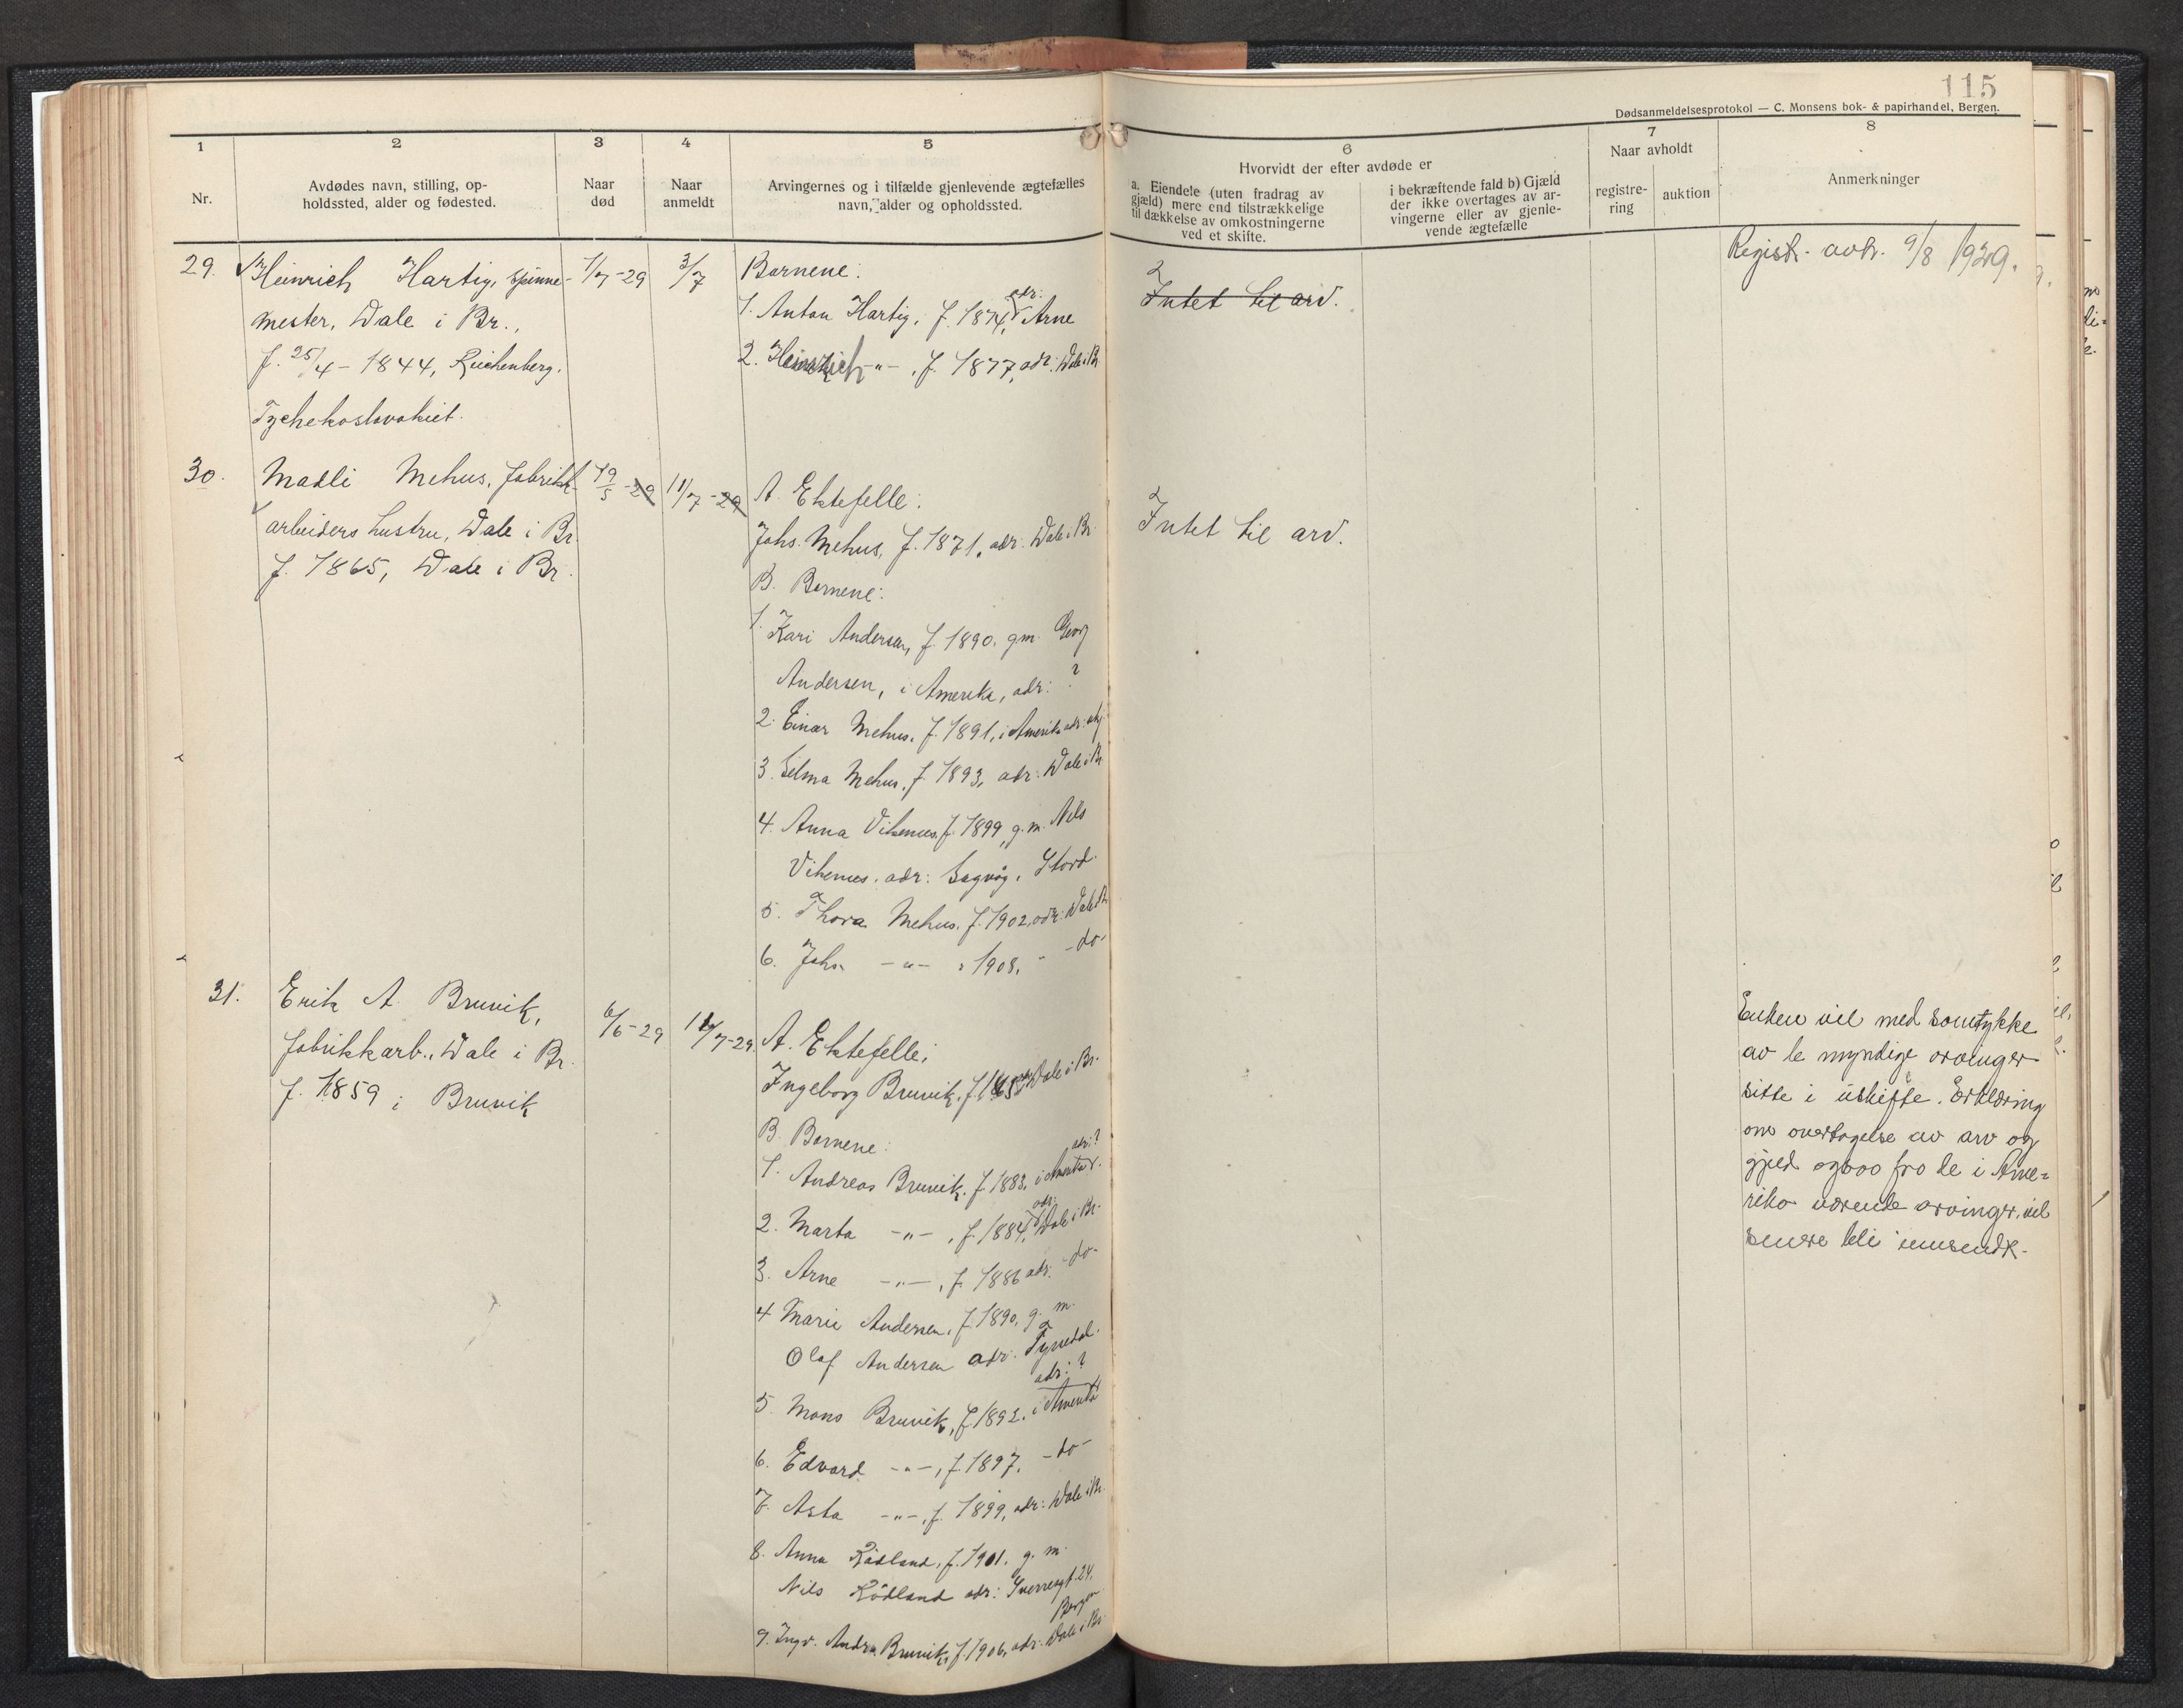 115
Dødsanmeldelsesprotokol — C. Monsens bok- & papirhandel, Bergen.
1
Nr.
2
Avdødes navn, stilling, op-
holdssted, alder og fødested.
3
Naar
død
4
Naar
anmeldt
5
Arvingernes og i tilfælde gjenlevende ægtefælles
navn, alder og opholdssted.
6
Hvorvidt der efter avdøde er
a. Eiendele (uten fradrag av
gjæld) mere end tilstrækkelige
til dækkelse av omkostningerne
ved et skifte.
i bekræftende fald b) Gjæld
der ikke overtages av ar-
vingerne eller av gjenle-
vende ægtefælle
7
Naar avholdt
registre-
ring
auktion
8
Anmerkninger
29.
Heinrich Hartig, spinne-
mester, Dale i Br.,
f. 25/4 - 1844, Reichenberg,
Tychekoslovakiet.
1/7-29
3/7
Barnene:
1. Anton Hartig, f. 1874, adr: Arne
2. Heinrich -"- , f. 1877, adr: Dale i Br.
Intet til arv.
Registr. avh. 9/8 1929.
30.
Madli Mehus, fabrikk-
arbeiders hustru, Dale i Br.
f. 1865, Dale i Br.
19/5-29
11/7-29
A. Ektefelle:
Johs. Mehus, f. 1871, adr. Dale i Br.
B. Barnene:
1. Kari Andersen, f. 1890, gm. Georg
Andersen, i Amerika, adr: ?
2. Einar Mehus, f. 1891, i Amerika adr:
3. Selma Mehus, f. 1893, adr: Dale i Br
4. Anna Vikenes, f. 1899, g.m. Nils
Vikenes. adr: Sagvåg, Stord.
5. Thora Mehus, f. 1902, adr: Dale i Br
6. Johs. -"- " 1908, " -do-
Intet til arv.
31.
Erik A. Bruvik,
fabrikkarb., Dale i Br.
f. 1859 i Bruvik
6/6-29
11/7-29.
A. Ektefelle:
Ingeborg Bruvik, f. Dale i Br.
B. Barnene:
1. Andreas Bruvik, f. 1883, i Amerika adr: ?
2. Marta -"- , f. 1884, adr: Dale i Br.
3. Arne -"- , f. 1886 adr. -do-
4 Marie Andersen, f. 1890, g. m.
Olaf Andersen adr. Tyssedal.
5. Mons Bruvik, f. 1892, i Amerika adr: ?
6. Edvard -"-, f. 1897, -do-
7. Asta -"-, f. 1899, adr: Dale i Br.
8. Anna Rödland, f. 1901, g. m.
Nils Rödland adr: Sverresgt. 24,
Bergen
9. Ingv. Andr. Bruvik, f. 1906, adr. Dale i Br.
Enken vil med samtykke
av de myndige arvinger
sitte i uskifte. Erklæring
om overtagelse av arv og
gjeld ogsaa fra de i Ame=
rika værende arvinger, vil
senere bli innsendt.